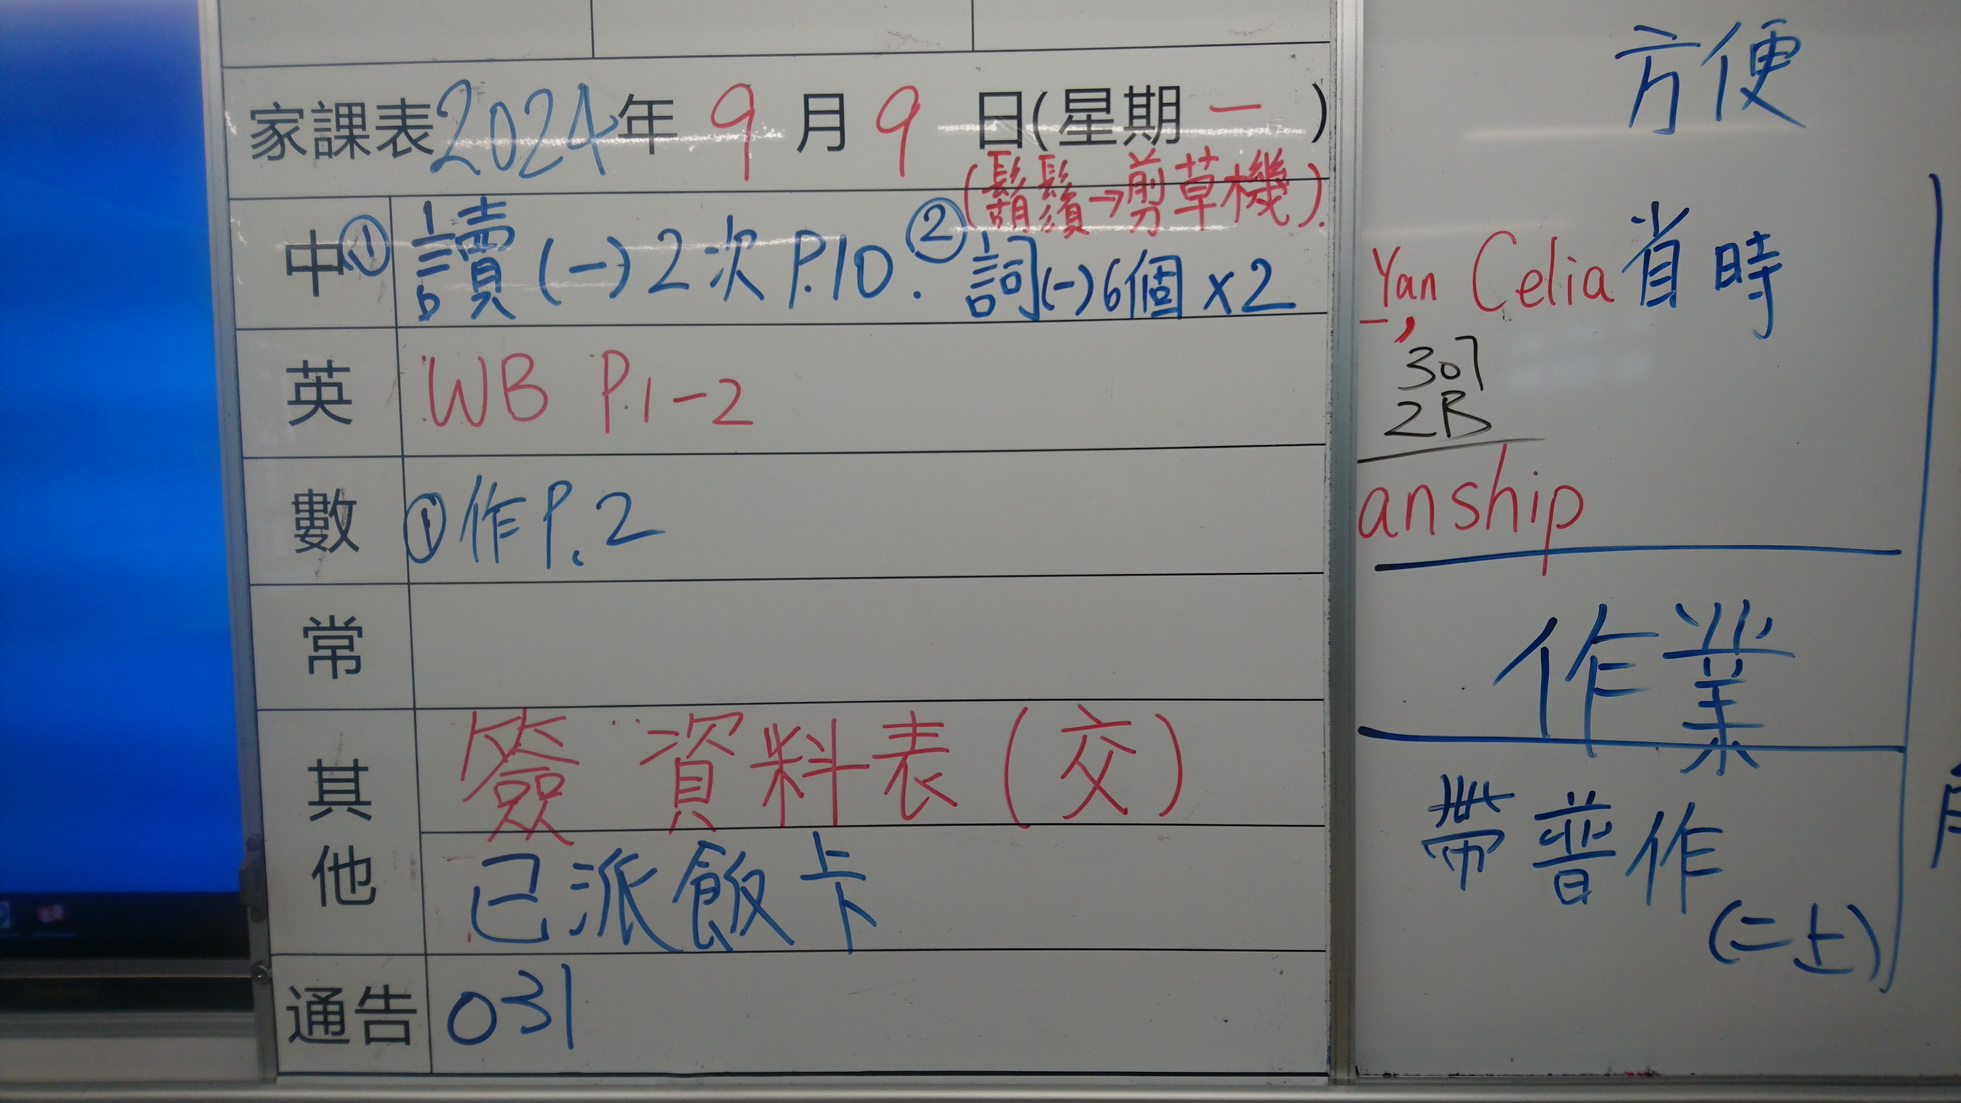 家課表2024年9月9日(星期一)
(鬍鬚→剪草機).
中①讀(一)2次 P.10. ②詞(一)6個×2
英 WB P.1-2
數 ①作P.2
常
其他 簽 資料表(交)
已派飯卡
通告 031
方便
Yan Celia 省時
307
2B
anship
作業
帶普作
(二上)